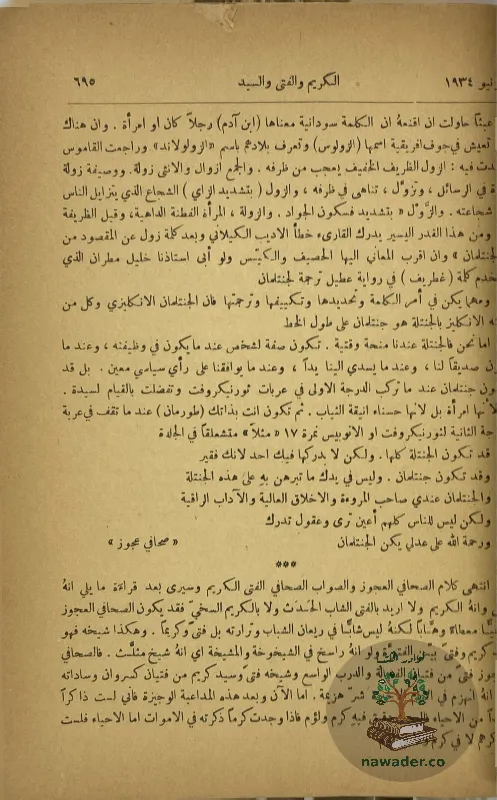 نيو ١٩٣٤ الكريم والفتى والسيد ٦٩٥
عبثاً حاولت ان اقنعهُ ان الكلمة سودانية معناها (ابن آدم) رجلاً كان او امرأة . وان هناك
تعيش في جوف افريقية اسمها (الزولوس) وتعرف بلادهم باسم «الزولولاند» وراجعت القاموس
دت فيه : ازول الظريف الخفيف يعجب من ظرفه . والجمع ازوال والانثى زولة. ووصيفة زولة
ة في الرسائل ، وتزوَّل ، تناهى في ظرفه ، وازول ( بتشديد الزاي ) الشجاع الذي يتزايل الناس
شجاعته . والزَّوْل « بتشديد فسكون الجواد . والزولة ، المرأة الفطنة الداهية، وقيل الظريفة
ومن هذا القدر اليسير يدرك القارىء خطأ الاديب الكيلاني وبعد كلمة زول عن المقصود من
لجنتلمان » وان اقرب المعاني اليها الحصيف والكيّس ولو أبى استاذنا خليل مطران الذي
خدم كلمة ( غطريف ) في رواية عطيل ترجمة لجنتلمان
ومهما يكن في أمر الكلمة وتحديدها وتكييفها وترجمتها فان الجنتلمان الانكليزي وكل من
له الانكليز بالجنتلة هو جنتلمان على طول الخط
اما نحن فالجنتلة عندنا منحة وقتية . تكون صفة لشخص عند ما يكون في وظيفته ، وعند ما
ون صديقاً لنا ، وعند ما يسدي الينا يداً ، وعند ما يوافقنا على رأي سياسي معين . بل قد
ون جنتلمان عند ما تركب الدرجة الاولى في عربات ثورنيكروفت وتفضلت بالقيام لسيدة .
لا نها امرأة بل لانها حسناء انيقة الثياب . ثم تكون انت بذاتك (طورمان) عند ما تقف في عربة
جة الثانية لثورنيكروفت او الاتوبيس نمرة ١٧ «مثلاً» متشعلقاً في الجلدة
قد تكون الجنتلة كلها . ولكن لا يدركها فيك احد لانك فقير
وقد تكون جنتلمان . وليس في يدك ما تبرهن به على هذه الجنتلة
والجنتلمان عندي صاحب المروءة والاخلاق العالية والآداب الراقية
ولكن ليس للناس كلهم أعين ترى وعقول تدرك
ورحمة الله على عدلي يكن الجنتلمان « صحافي عجوز »
***
انتهى كلام الصحافي العجوز والصواب الصحافي الفتى الكريم وسيرى بعد قراءة ما يلي انهُ
وانهُ الكريم ولا اريد بالفتى الشاب الحَدَث ولا بالكريم السخيّ فقد يكون الصحافي العجوز
معطاءً وهَّاباً لكنهُ ليس شابًّا في ريعان الشباب وترارته بل فتىً وكريماً . وهكذا شيخه فهو
كريم وفتى بيّن الفتوة ولو انهُ راسخ في الشيخوخة والمشيخة اي انهُ شيخ مثلَّث . فالصحافي
جوز فتىً من فتيان والدرب الواسع وشيخه فتىً وسيد كريم من فتيان كسروان وساداته
انهُ انهزم في شر هزيمة . اما الآن وبعد هذه المداعبة الوجيزة فاني لست ذاكراً
من الاحياء فيه كرم ولؤم فاذا وجدت كرماً ذكرته في الاموات اما الاحياء فلست
كرهم لا في كرم
نوادر الكتب
nawader.co